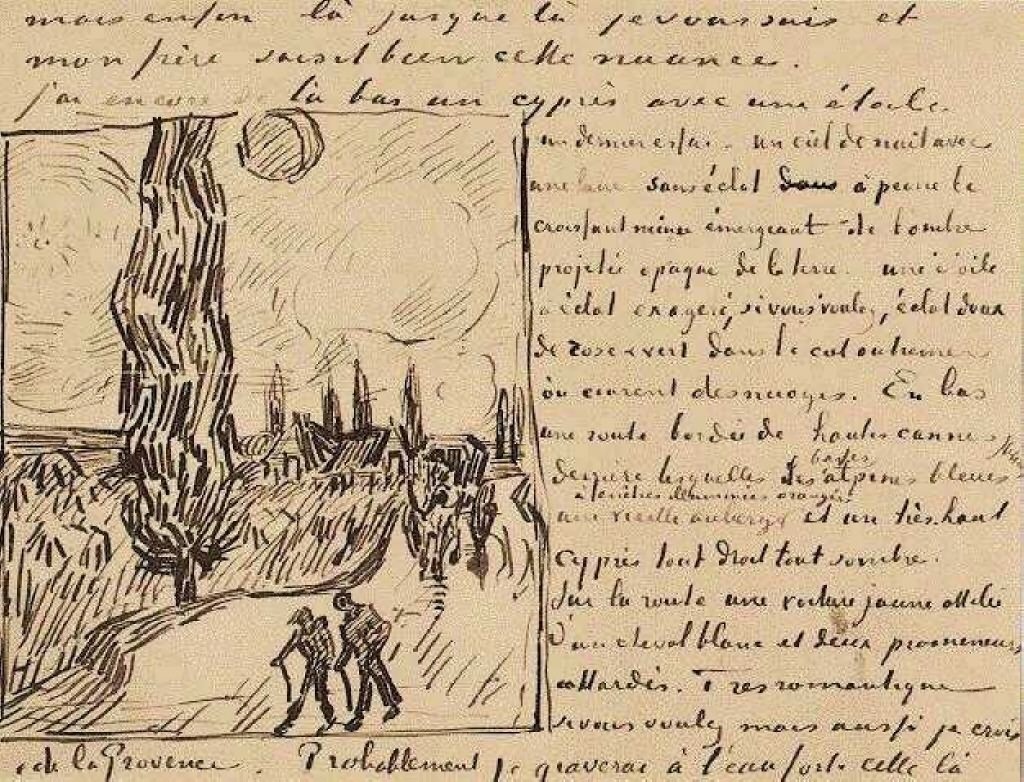 mais enfin là jusque là je vous suis et
mon frère saisit bien cette nuance.
j'ai encore de là bas un cyprès avec une étoile
un dernier essai – un ciel de nuit avec
une lune sans éclat dans à peine le
croissant mince émergeant de l'ombre
projetée opaque de la terre – une étoile
à éclat exageré, si vous voulez, éclat doux
de rose & vert dans le ciel outremer
où courent des nuages. En bas
une route bordée de hautes cannes jaunes
derrière lesquelles les basses alpines bleues
à fenêtres illuminées orangées
une vieille auberge et un très haut
cyprès tout droit tout sombre.
Sur la route une voiture jaune attelée
d'un cheval blanc et deux promeneurs
attardés. Très romantique
si vous voulez mais aussi je crois
de la Provence. Probablement je graverai à l'eau forte celle là